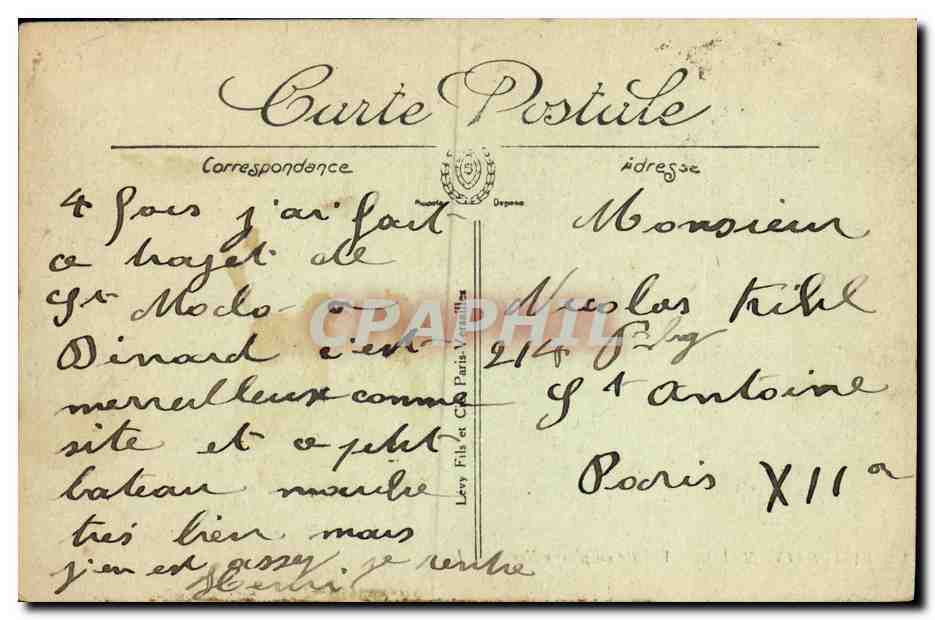 Carte Postale
Correspondance
Adresse
Modèle Déposé
4 fois j'ai fait
ce trajet de
St Malo a
Dinard c'est
merveilleux comme
site et ce ptit
bateau marche
très bien mais
j'en est assez je rentre
Henri
Lévy Fils et Cie Paris-Versailles
Monsieur
Nicolas
214 Fbrg
St Antoine
Paris XII
CPAPHIL